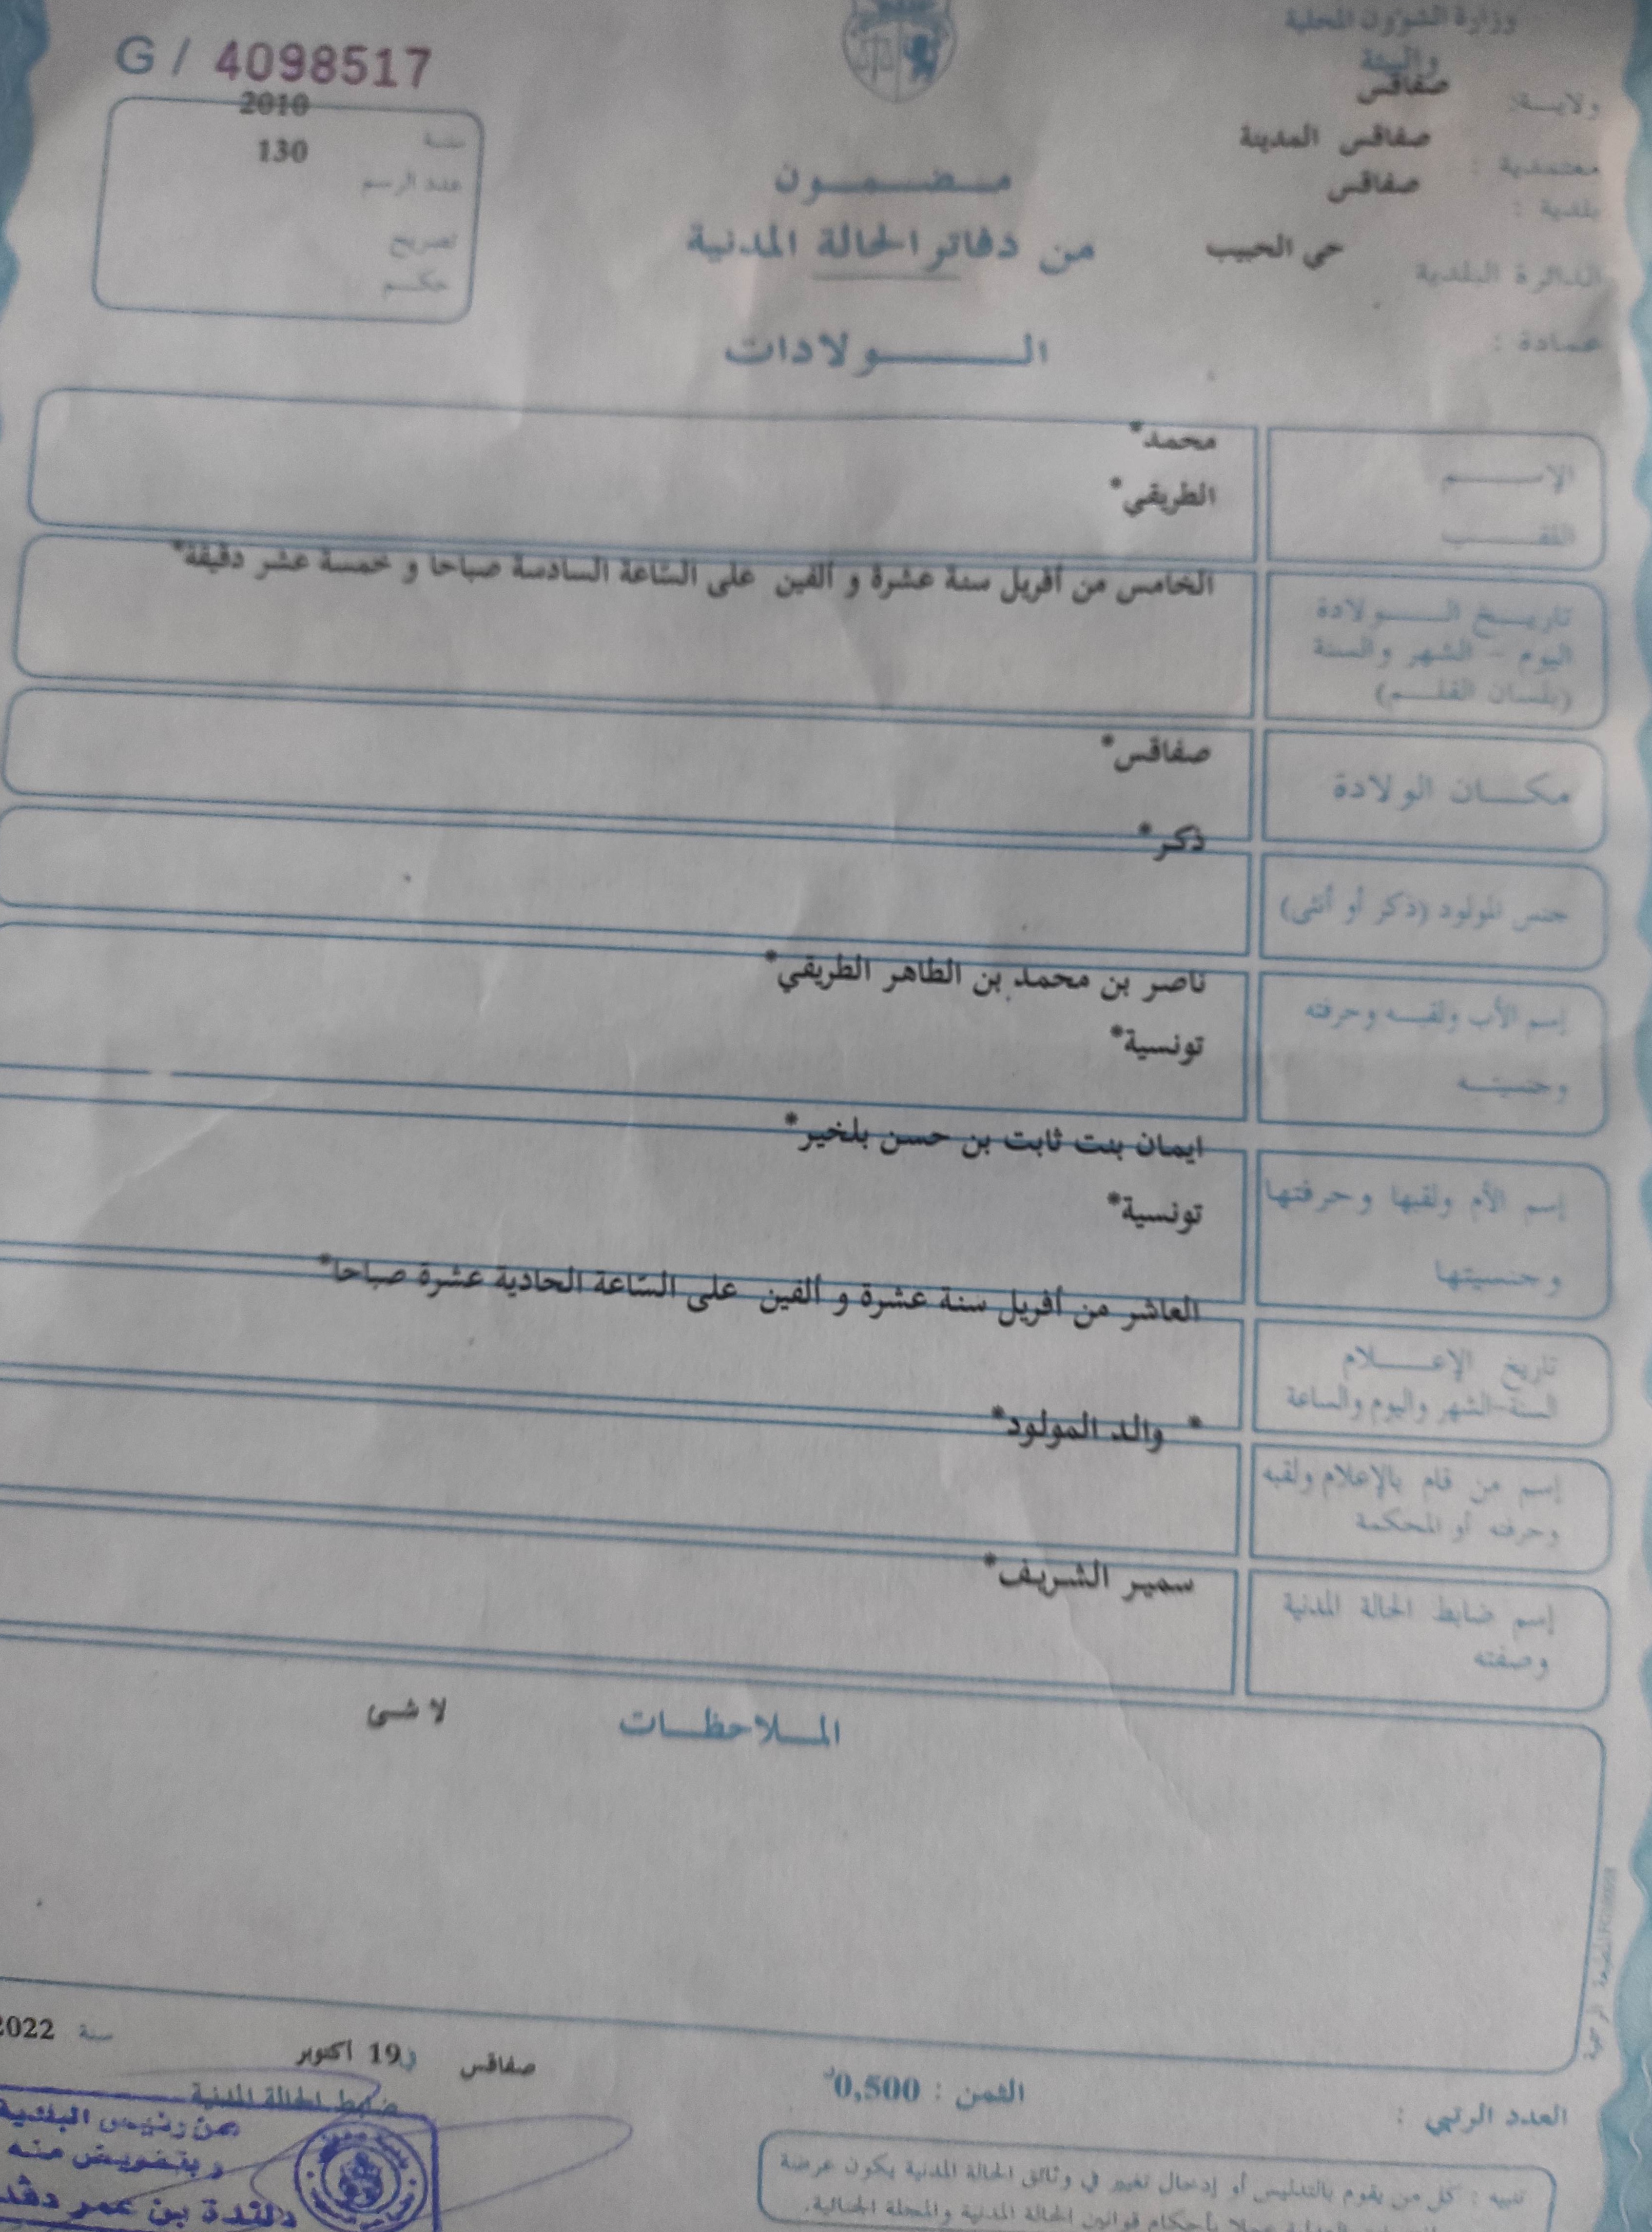 وزارة الشؤون المحلية
والبيئة
G / 4098517
ولاية: صفاقس
معتمدية : صفاقس المدينة
بلدية : صفاقس
الدائرة البلدية حي الحبيب
عمادة :
سنة 2010
عدد الرسم 130
تصريح
حكم
مضمون
من دفاتر الحالة المدنية
الولادات
الإسم محمد*
اللقب الطريقي*
تاريخ الولادة
اليوم - الشهر والسنة
(بلسان القلم)
الخامس من أفريل سنة عشرة و ألفين على السّاعة السادسة صباحا و خمسة عشر دقيقة*
مكان الولادة صفاقس*
جنس المولود (ذكر أو أنثى) ذكر*
إسم الأب ولقبه وحرفته ناصر بن محمد بن الطاهر الطريقي*
وجنسيته تونسية*
إسم الأم ولقبها وحرفتها ايمان بنت ثابت بن حسن بلخير*
وجنسيتها تونسية*
تاريخ الإعلام
السنة-الشهر واليوم والساعة
العاشر من أفريل سنة عشرة و ألفين على السّاعة الحادية عشرة صباحا*
إسم من قام بالإعلام ولقبه
وحرفته أو المحكمة
* والد المولود*
إسم ضابط الحالة المدنية
وصفته
سمير الشريف*
الملاحظات لا شئ
المطبعة الرسمية
صفاقس في 19 اكتوبر سنة 2022
ضابط الحالة المدنية
العدد الرتبي :
الثمن : 0,500د
عن رئيس البلدية
و بتفويض منه
دلندة بن عمر دقد
تنبيه : كل من يقوم بالتدليس أو إدخال تغيير في وثائق الحالة المدنية يكون عرضة
عملا بأحكام قوانين الحالة المدنية والمجلة الجنائية.